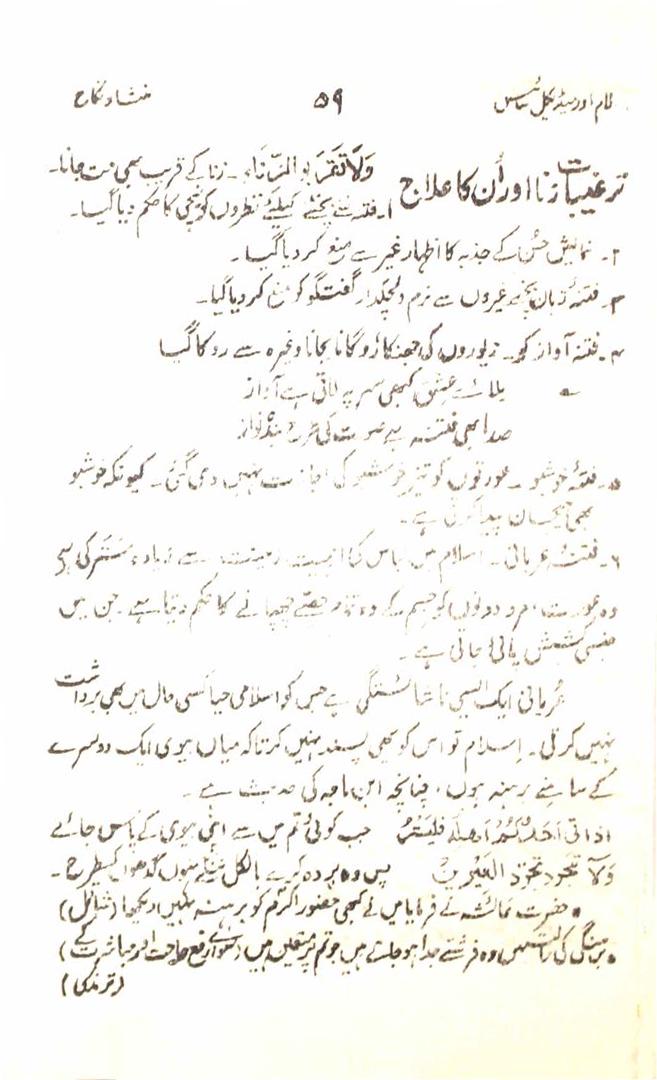 اسلام اور میڈیکل سائنس ۵۹ منشاء نکاح
ترغیبات زنا اور اُن کا علاج وَلَا تَقْرَبُوا الزِّنَاء ۔ زنا کے قریب بھی مت جانا۔
۱۔ فتنہ سے بچنے کیلئے نظروں کو نیچی کا حکم دیا گیا۔
۲۔ نمائیش حسن کے جذبہ کا اظہار غیر سے منع کر دیا گیا۔
۳۔ فتنۂ زبان غیروں سے نرم و لچکدار گفتگو کو منع کر دیا گیا۔
۴۔ فتنۂ آواز کو۔ زیوروں کی جھنکار و گانا بجانا وغیرہ سے روکا گیا
بلائے عشق کبھی سر پہ لاتی ہے آواز
صدا بھی فتنہ ہے صورت کی طرح
۵۔ فتنۂ خوشبو ۔ عورتوں کو تیز خوشبو کی اجازت نہیں دی گئی۔ کیونکہ خوشبو
بھی ہیجان پیدا کرتی ہے۔
۶۔ فتنۂ عریانی۔ اسلام میں لباس کی اہمیت زینت سے زیادہ ستر کی ہے
وہ عورت، مرد دونوں کو جسم کے وہ تمام حصّے چھپانے کا حکم دیتا ہے۔ جن میں
جنسی کشش پائی جاتی ہے۔
عُریانی ایک ایسی ناشائستگی ہے جس کو اسلامی حیا کسی حال میں بھی برداشت
نہیں کرتی۔ اسلام تو اس کو بھی پسند نہیں کرتا کہ میاں بیوی ایک دوسرے
کے سامنے برہنہ ہوں، چنانچہ ابن ماجہ کی حدیث ہے۔
اذا اتی اَحَدُکُمْ اَھْلَهٗ فَلْیَسْتَتِرْ جب کوئی تم میں سے اپنی بیوی کے پاس جائے
وَلَا تجرد تجرّد العیرین پس وہ پردہ کرے بالکل ننگے نہوں گدھوں کیطرح۔
• حضرت عائشہ نے فرمایا میں نے کبھی حضور اکرم کو برہنہ نہیں دیکھا (شمائل)
• برہنگی کی حالت میں وہ فرشتے جدا ہو جاتے ہیں جو تم پر متعین ہیں (سوائے رفع حاجت اور مباشرت کے)
(ترمذی)